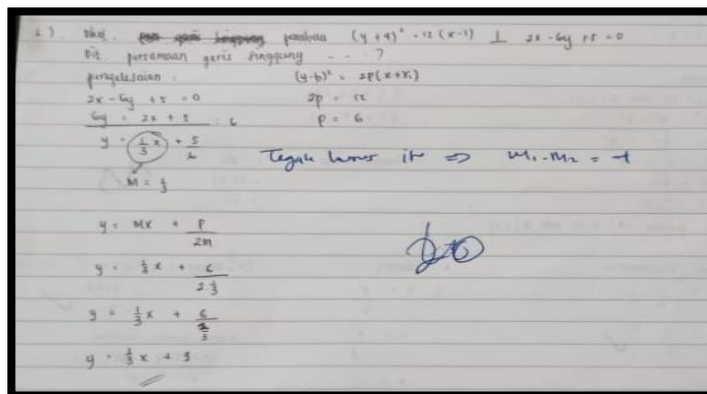 Diket. parabola (y + 4)² = 12 (x - 1) ⊥ 2x - 6y + 5 = 0
Dit. persamaan garis singgung ... ?
penyelesaian : (y-b)² = 2p(x+x₁)
2x - 6y + 5 = 0 2p = 12
6y = 2x + 5 : 6 p = 6
y = 1/3 x + 5/6
Tegak lurus itu ⇒ m₁.m₂ = -1
M = 1/3
y = Mx + P/2m
y = 1/3 x + 6/2 1/3
y = 1/3 x + 6/2/3
y = 1/3 x + 9